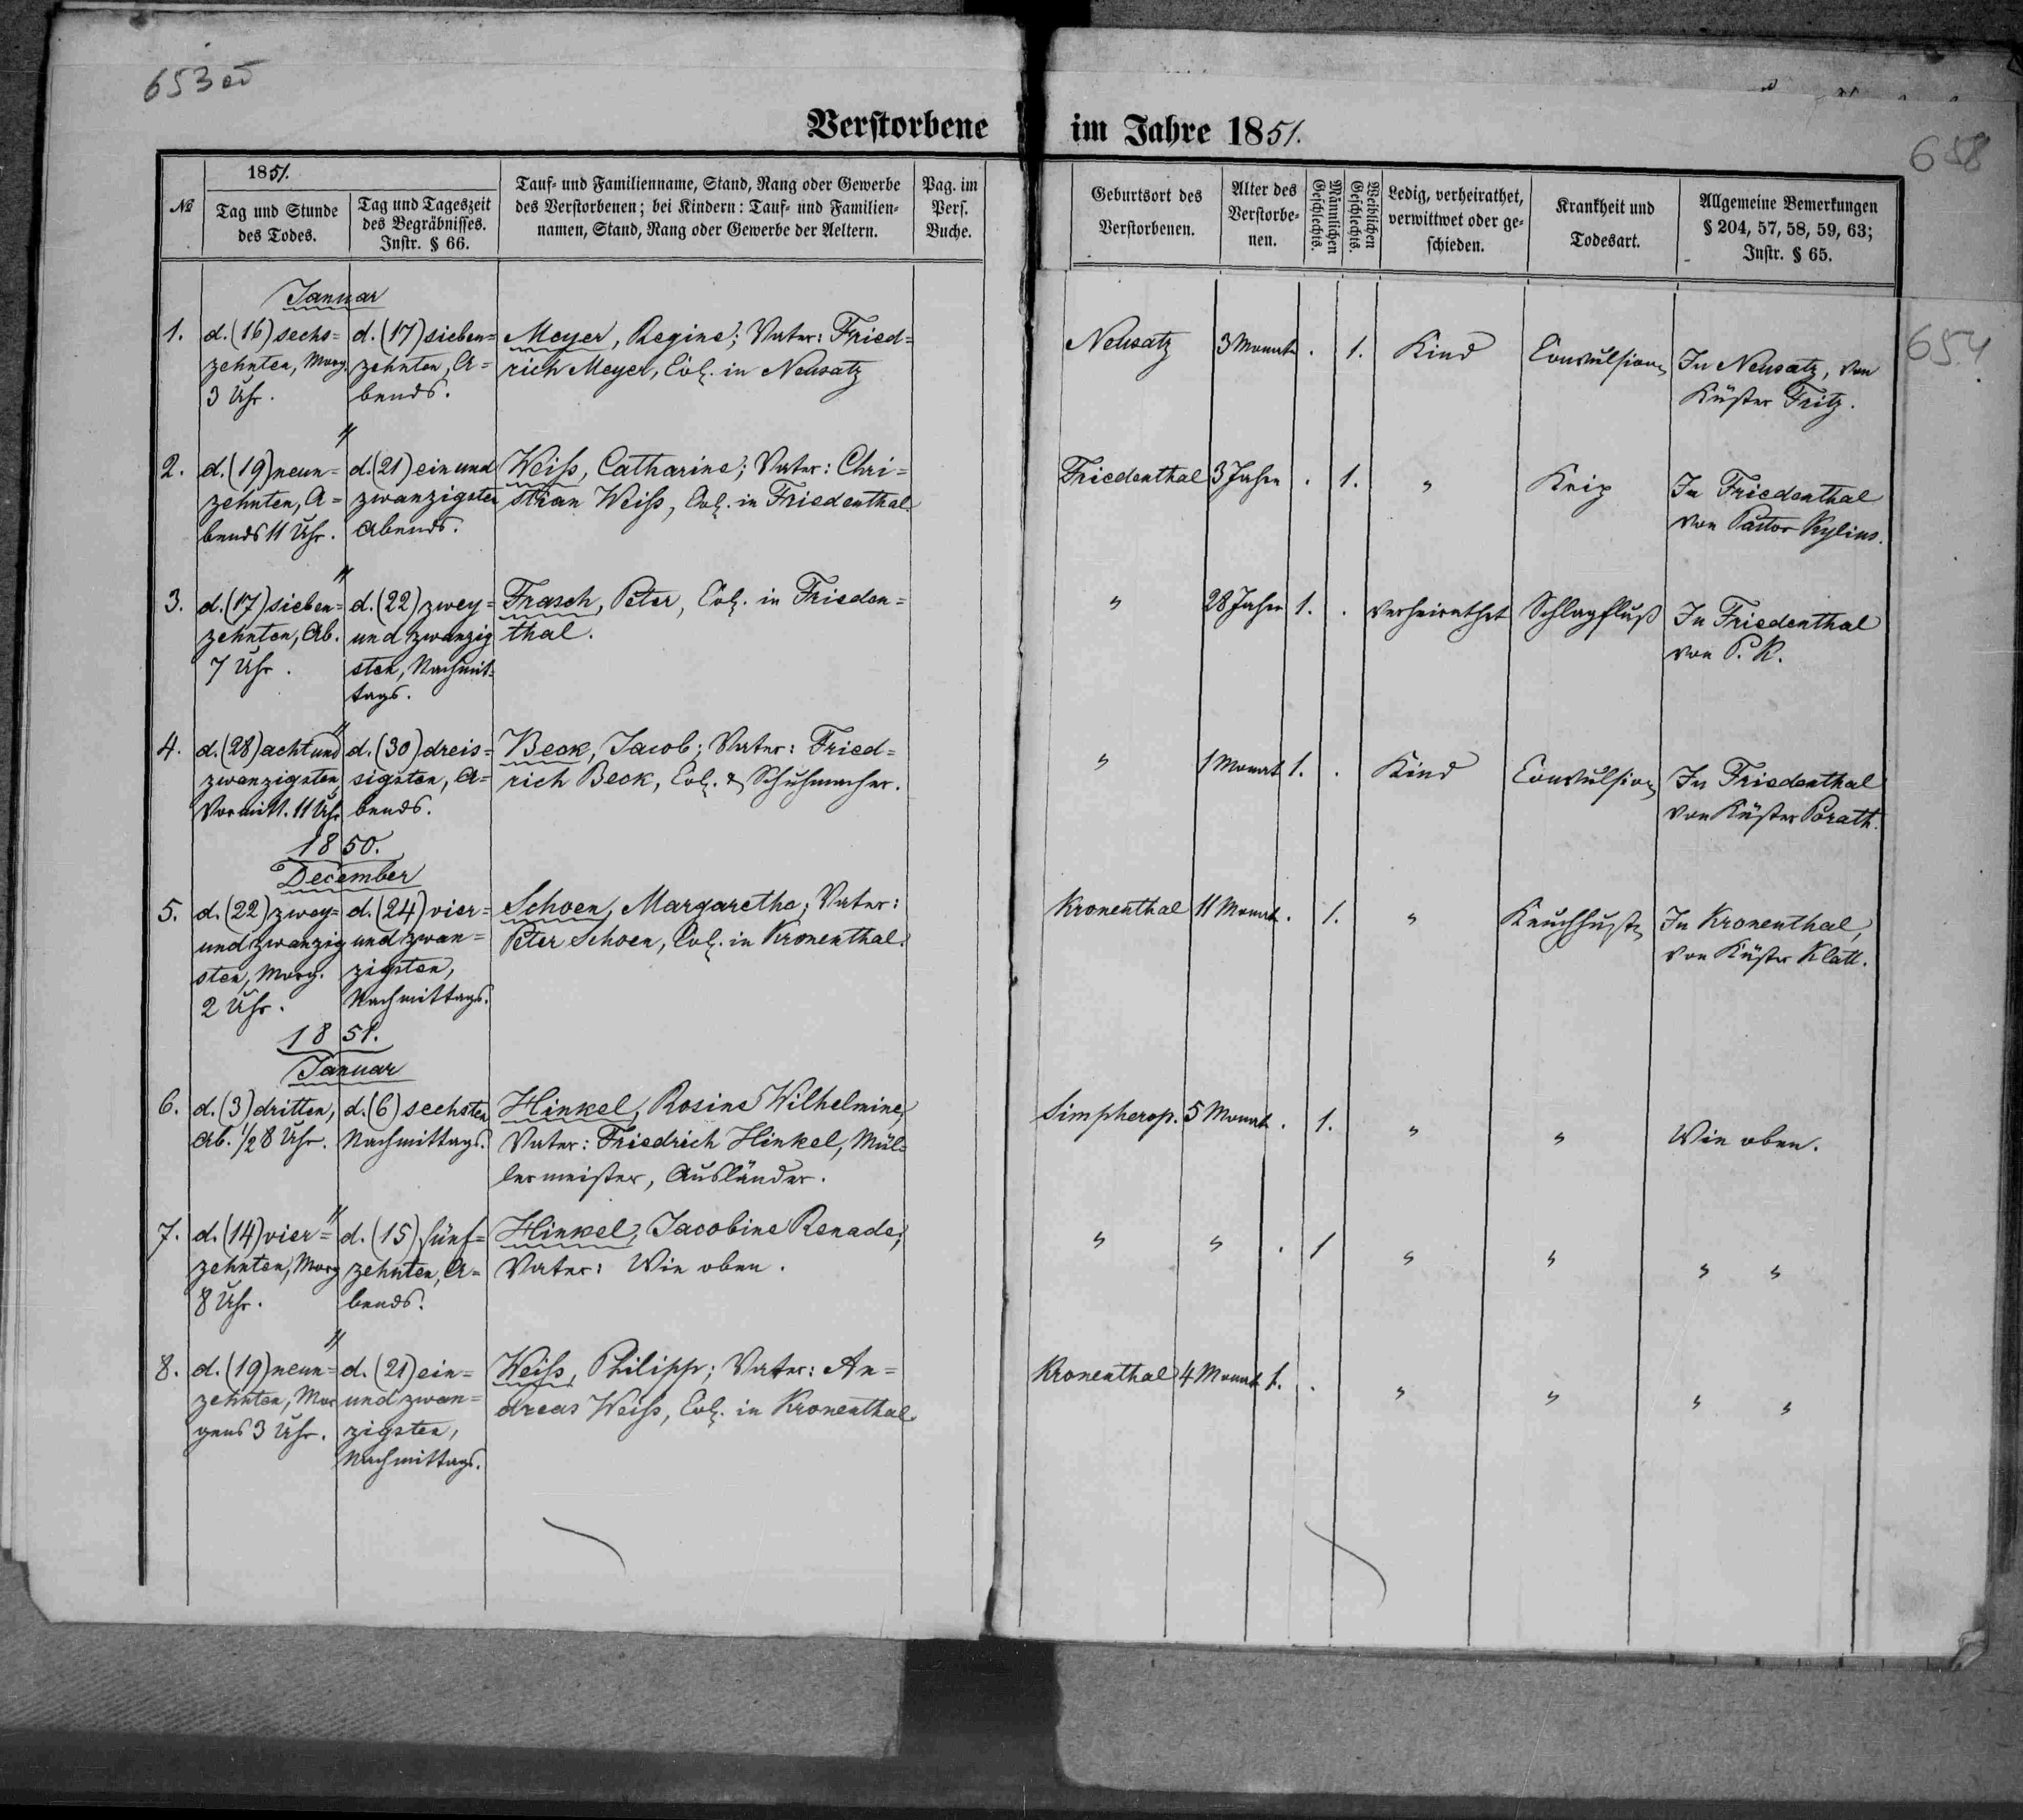 653 об
Verstorbene im Jahre 1851.
658
654
1851.
№
Tag und Stunde
des Todes.
Tag und Tageszeit
des Begräbnisses.
Instr. § 66.
Tauf- und Familienname, Stand, Rang oder Gewerbe
des Verstorbenen; bei Kindern: Tauf- und Familien-
namen, Stand, Rang oder Gewerbe der Aeltern.
Pag. im
Pers.
Buche.
Geburtsort des
Verstorbenen.
Alter des
Verstorbe-
nen.
Männlichen
Geschlechts.
Weiblichen
Geschlechts.
Ledig, verheirathet,
verwittwet oder ge-
schieden.
Krankheit und
Todesart.
Allgemeine Bemerkungen
§ 204, 57, 58, 59, 63;
Instr. § 65.
Januar
1.
d. (16) sechs=
zehnten, Morg.
3 Uhr.
d. (17) sieben=
zehnten, A=
bends.
Meyer, Regine; Vater: Fried=
rich Meyer, Col. in Neusatz
Neusatz
3 Monate
.
1.
Kind
Convulsionen
In Neusatz, von
Küster Fritz.
"
2.
d. (19) neun=
zehnten, A=
bends 11 Uhr.
d. (21) ein und
zwanzigsten
Abends.
Weiß, Catharine; Vater: Chri=
stian Weiß, Col. in Friedenthal
Friedenthal
3 Jahre
.
1.
"
Krip
In Friedenthal
von Pastor Kylius.
"
3.
d. (17) sieben=
zehnten, Ab.
7 Uhr.
d. (22) zwey=
und zwanzig
sten, Nachmit=
tags.
Frasch, Peter, Col. in Frieden=
thal.
"
28 Jahre
1.
.
verheirathet
Schlagfluß
In Friedenthal
von P. K.
"
4.
d. (28) acht und
zwanzigsten
Vormitt. 11 Uhr
d. (30) dreis=
sigsten, A=
bends.
Beck, Jacob; Vater: Fried=
rich Beck, Col. & Schuhmacher.
"
1 Monat
1.
.
Kind
Convulsion
In Friedenthal
von Küster Porath.
1850.
December
5.
d. (22) zwey=
und zwanzig
sten, Morg.
2 Uhr.
d. (24) vier=
und zwan=
zigsten,
Nachmittags.
Schoen, Margarethe; Vater:
Peter Schoen, Col. in Kronenthal.
Kronenthal
11 Monat
.
1.
"
Keuchhusten
In Kronenthal,
von Küster Klatt.
1851.
Januar
6.
d. (3) dritten,
Ab. 1/2 8 Uhr.
d. (6) sechsten
Nachmittags.
Hinkel, Rosine Wilhelmine;
Vater: Friedrich Hinkel, Mül=
lermeister, Ausländer.
Simpherop.
5 Monat
.
1.
"
"
Wie oben.
"
7.
d. (14) vier=
zehnten, Morg
8 Uhr.
d. (15) fünf=
zehnten, A=
bends.
Hinkel, Jacobine Renade;
Vater: Wie oben.
"
"
.
1
"
"
" "
"
8.
d. (19) neun=
zehnten, Mor
gens 3 Uhr.
d. (21) ein=
und zwan=
zigsten,
Nachmittags.
Weiß, Philipp; Vater: An=
dreas Weiß, Col. in Kronenthal.
Kronenthal
4 Monat
1.
.
"
"
" "